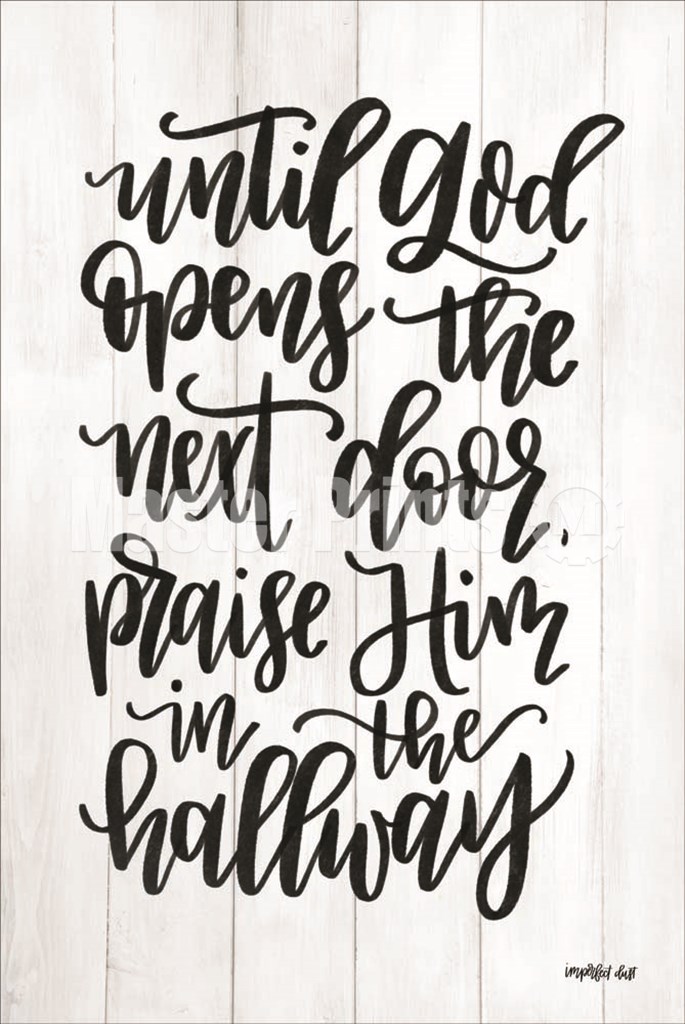 until God
opens the
next door,
praise Him
in the
hallway
Master Prints
imperfect dust